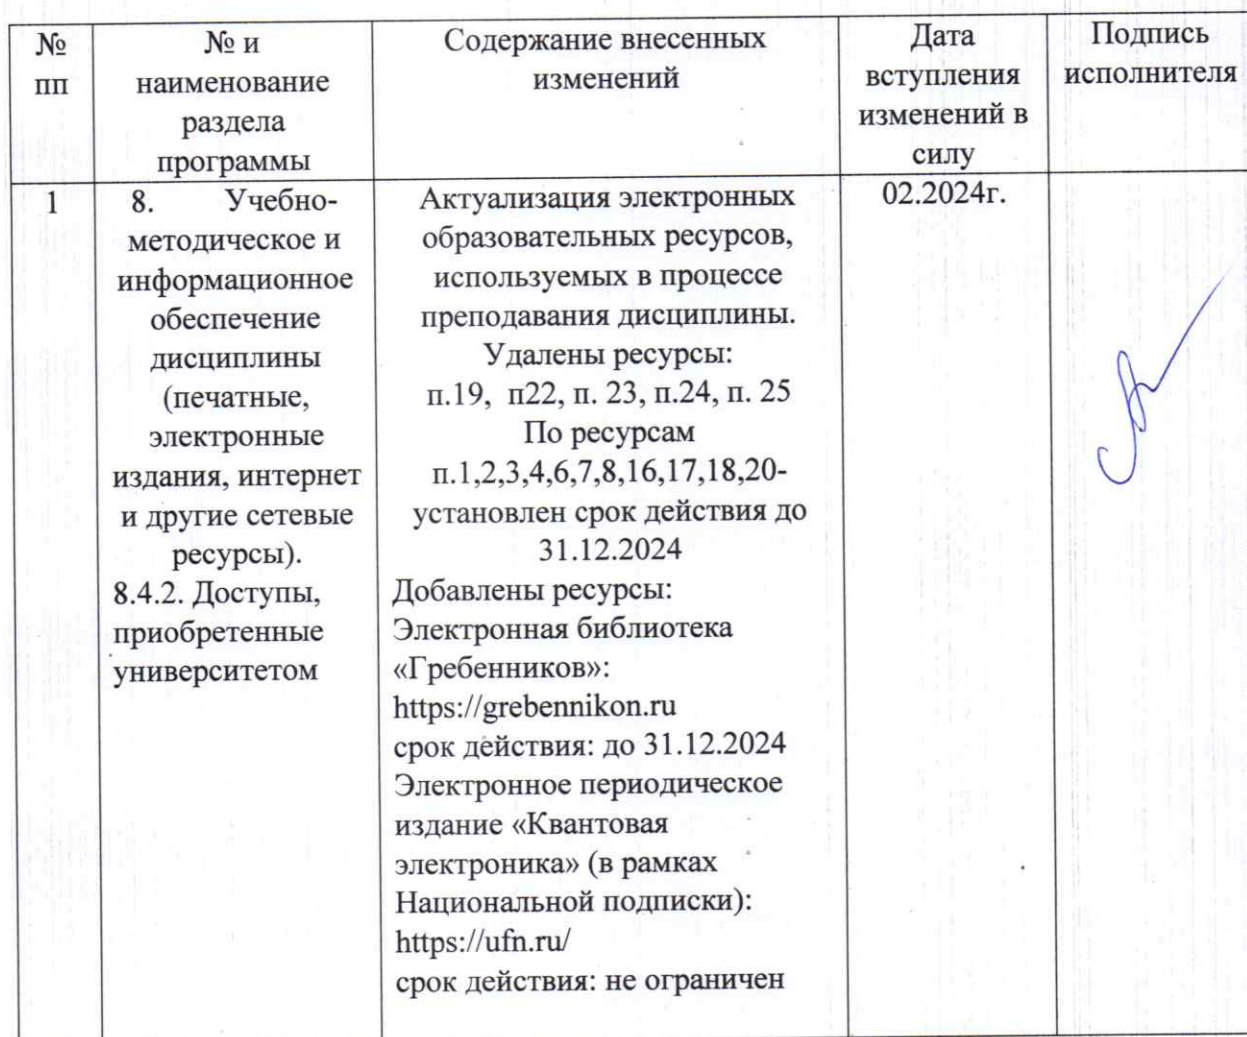 №
пп
№ и
наименование
раздела
программы
Содержание внесенных
изменений
Дата
вступления
изменений в
силу
Подпись
исполнителя
1
8. Учебно-
методическое и
информационное
обеспечение
дисциплины
(печатные,
электронные
издания, интернет
и другие сетевые
ресурсы).
8.4.2. Доступы,
приобретенные
университетом
Актуализация электронных
образовательных ресурсов,
используемых в процессе
преподавания дисциплины.
Удалены ресурсы:
п.19, п22, п. 23, п.24, п. 25
По ресурсам
п.1,2,3,4,6,7,8,16,17,18,20-
установлен срок действия до
31.12.2024
Добавлены ресурсы:
Электронная библиотека
«Гребенников»:
https://grebennikon.ru
срок действия: до 31.12.2024
Электронное периодическое
издание «Квантовая
электроника» (в рамках
Национальной подписки):
https://ufn.ru/
срок действия: не ограничен
02.2024г.